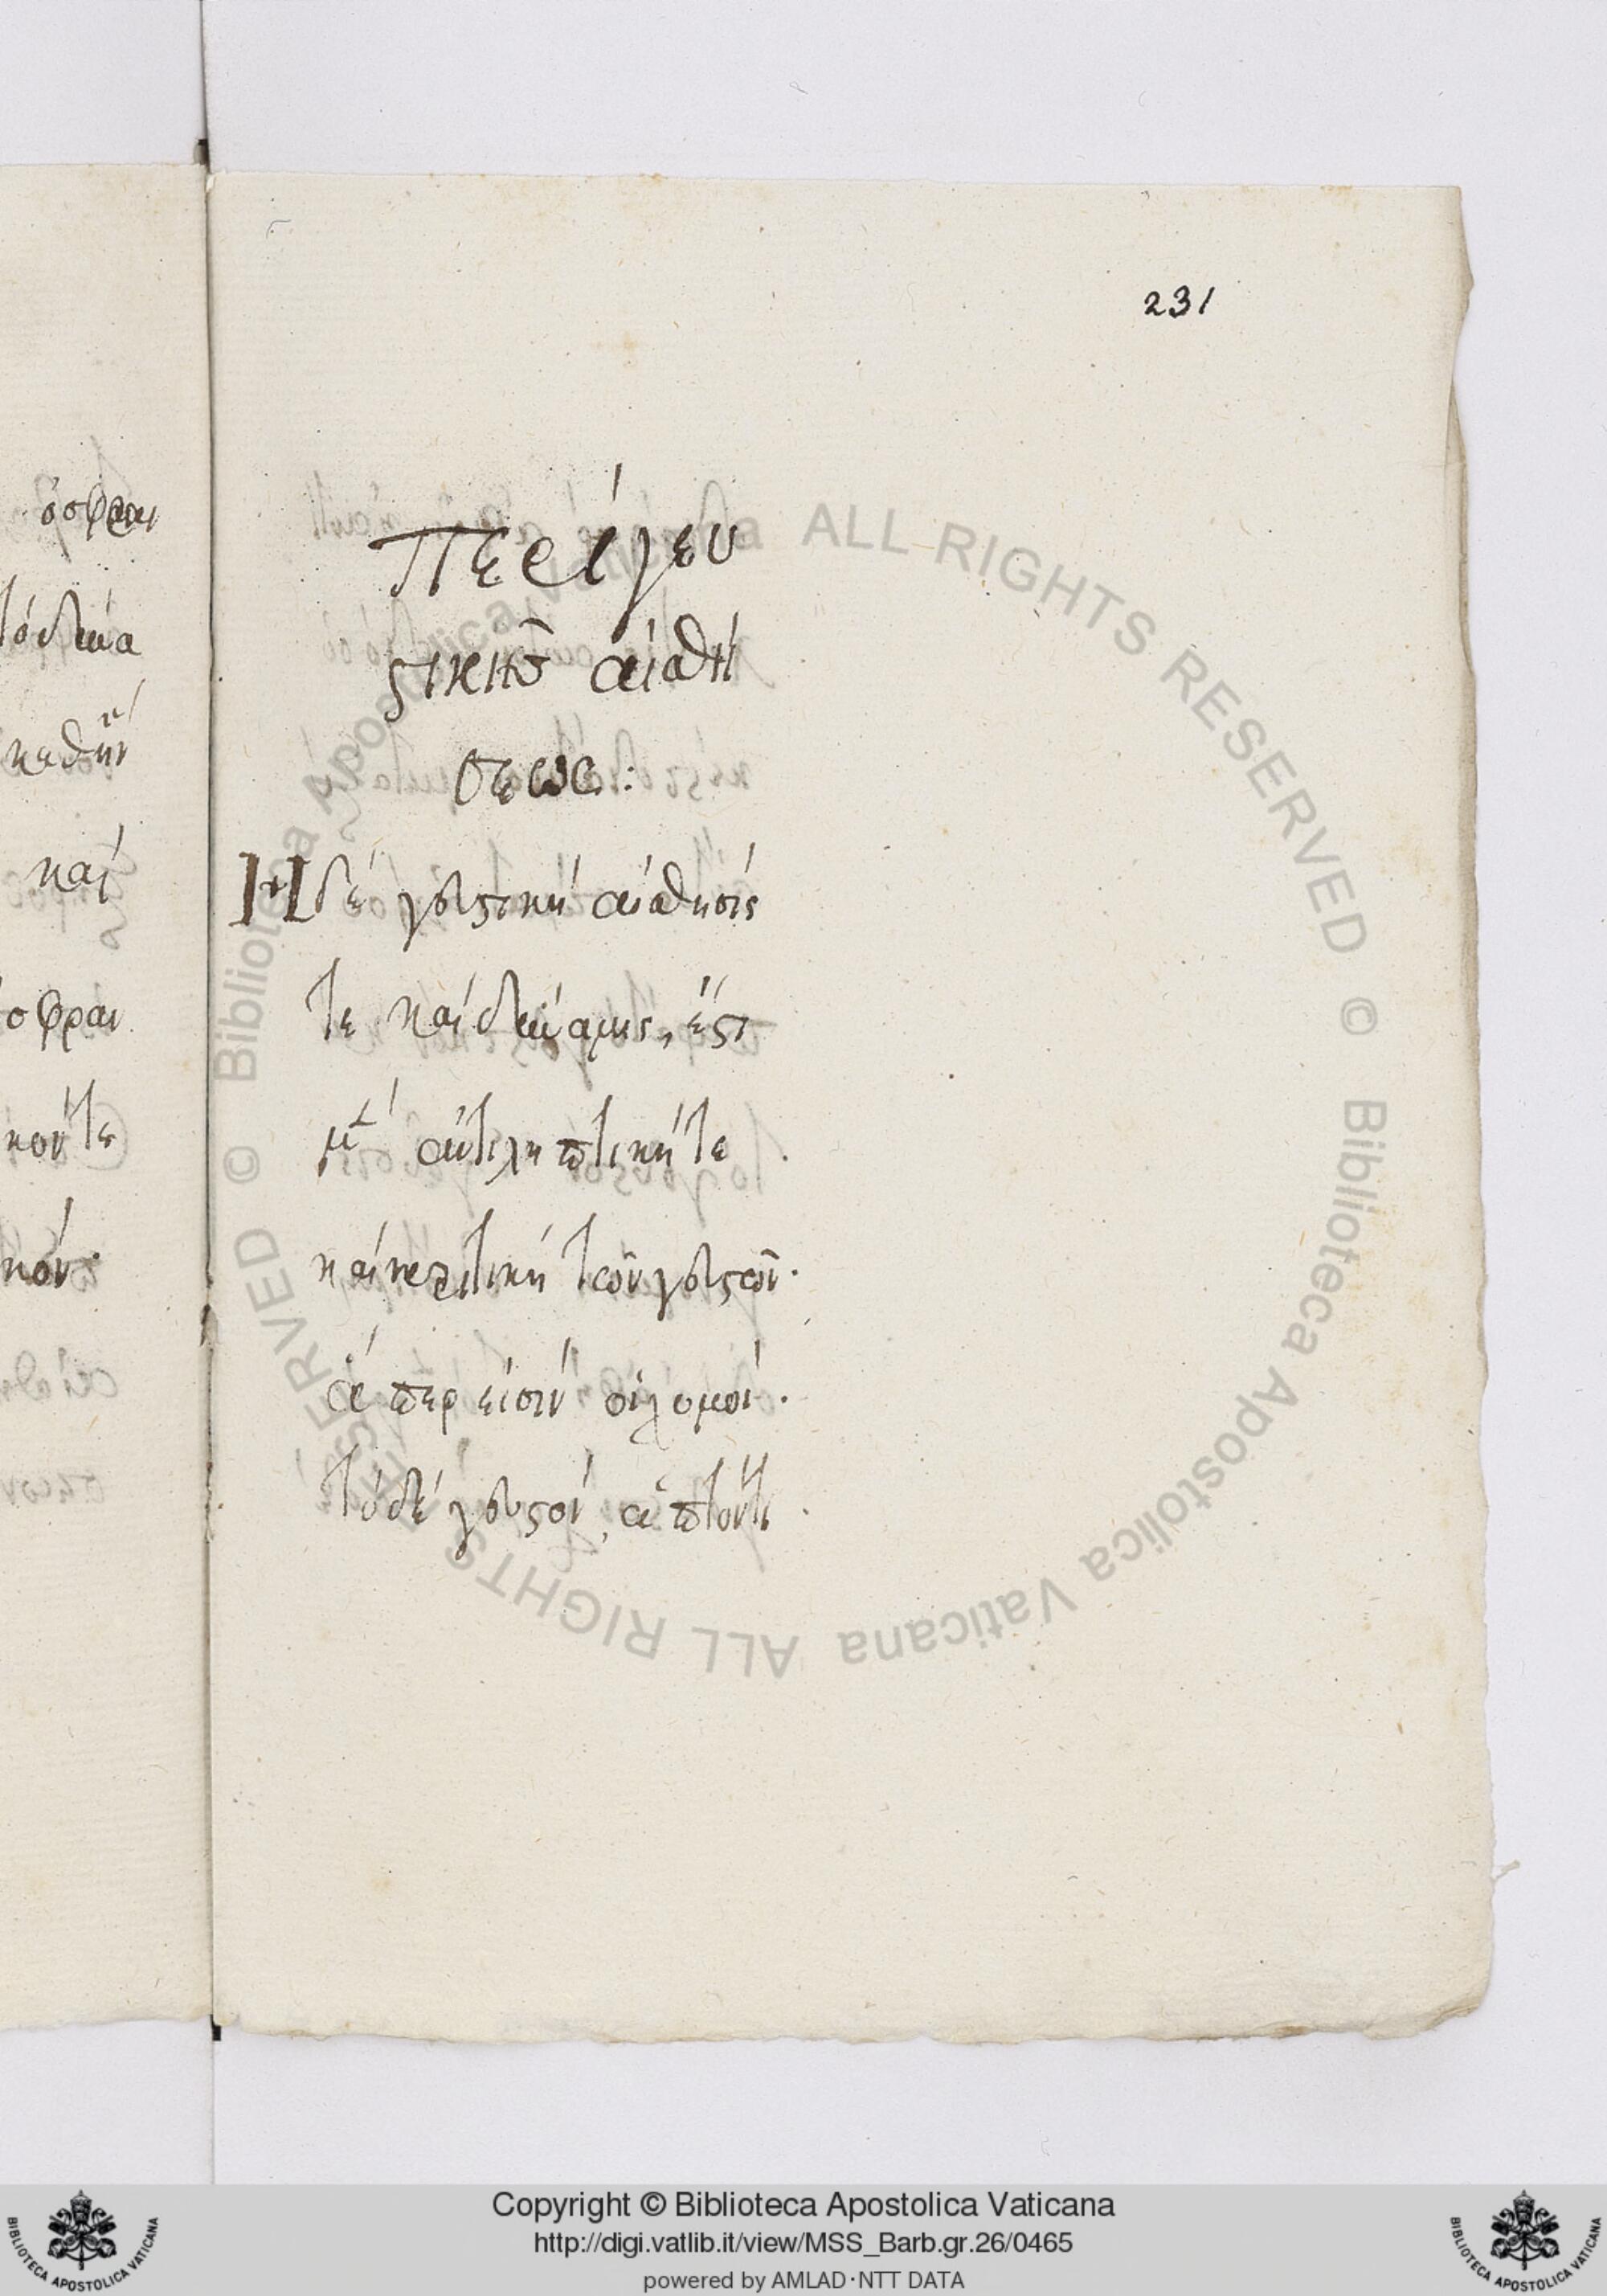 231
Περὶ γευ
στικῆς αἰσθή
σεως:
Ἡ δὲ γευστικὴ αἴσθησίς
τε καὶ δύναμις, ἔστι
μὲν ἀντιληπτικὴ τε
καὶ κριτικὴ τῶν γευστῶν·
ἅπερ εἰσὶν οἱ χυμοί·
τὸ δὲ γευστὸν, ἁπτόν τι
ὀσφραν
το δυνα
καὶ
οσφραν
κόν τε
κόν·
© Biblioteca Apostolica Vaticana ALL RIGHTS RESERVED © Biblioteca Apostolica Vaticana ALL RIGHTS RESERVED
Copyright © Biblioteca Apostolica Vaticana
http://digi.vatlib.it/view/MSS_Barb.gr.26/0465
powered by AMLAD·NTT DATA
BIBLIOTECA APOSTOLICA VATICANA
BIBLIOTECA APOSTOLICA VATICANA